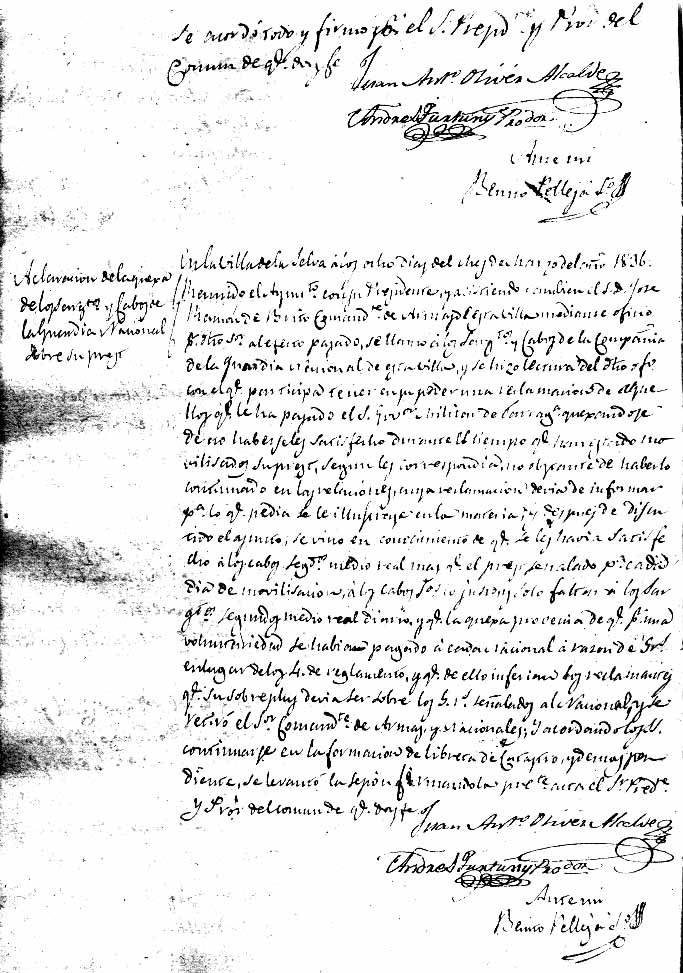 se acordó todo y firmo pr. el S. Presid.te y Pror del
Comun de qe. doy fe
Juan Anto. Olivér Alcalde
Andres Juncuny Prodor.
Ante mi
Benno Pellejà So.
Aclaracion de la quexa
de los Sargtos. y Cabos de
la Guardia Nacional
sobre su prest
En la Villa de la Selva à los ocho dias del mes de Marzo del año 1836.
Reunido el Aymto. con su Presidente, y asistiendo tambien el S. D. Jose
Ramon de Comandte. de Armas de esta villa mediante oficio
pr. dho. Sor. al efecto pasado, se llamo à los Sargtos. y Cabos de la Compañia
de la Guardia Nacional de esta villa, y se hizo lectura del dho. ofo.
con el qe. participa tener en su poder una reclamacion de aque
llos qe. le ha pasado el S. Gor. Militar de Tarraga. quexandose
de no haberseles satisfecho durante el tiempo qe. han estado mo
vilisados su prest, segun les correspondia, no obstante de haberlo
continuado en las relaciones, cuya reclamacion devia de informar
pr. lo qe. pedia se le illustrase en la materia; y despues de discu
tido el asunto, se vino en conocimiento de qe. se les havia satisfe
cho à los cabos segdos. medio real mas qe. el prest señalado pr. cada
dia de movilisacion, à los cabos 1os. lo justo, y solo faltar à los Sar
gtos. segundos medio real diario, y qe. la quexa provenia de qe. pr. una
voluntariedad se habian pagado à cada nacional à razon de 5 rs.
en lugar de los 4. de reglamento, y qe. de ello inferian los reclamantes
qe. su sobreplus devia ser sobre los 5. rs. señalados al Nacional, y se
retiró el Sor. Comandte. de Armas, y Nacionales; Y acordando los SS.
continuarse en la formacion de libreta de Catastro, y demas pen
diente, se levantó la sesion firmandola preste. acta el Sr. Presidte.
Y Pror. del comun de qe. doy fe
Juan Anto. Olivér Alcalde
Andres Juncuny Prodor.
Ante mi
Benno Pellejà So.